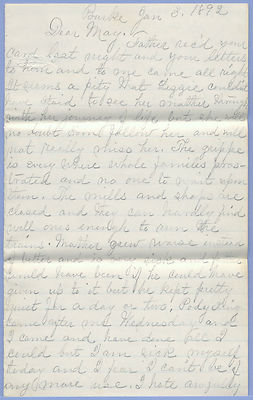 Burke Jan 3. 1892
Dear May,
Father rec'd your
card last night and your letters
to him and to me came all right
It seems a pity that Lizzie couldn't
have staid to see her mother through
with her journey of life, but she will
no doubt soon follow her and will
not really miss her. The grippe
is every where whole families pros-
trated and no one to wait upon
them. The mills and shops are
closed and they can hardly find
well ones enough to run the
trains. Mother grew worse instead
of better and is
would have been if he could have
given up to it but he kept pretty
quiet for a day or two,
came after me Wednesday and
I came and have done all I
could but I am sick myself
today and I fear I can't be of
any more use. I hate